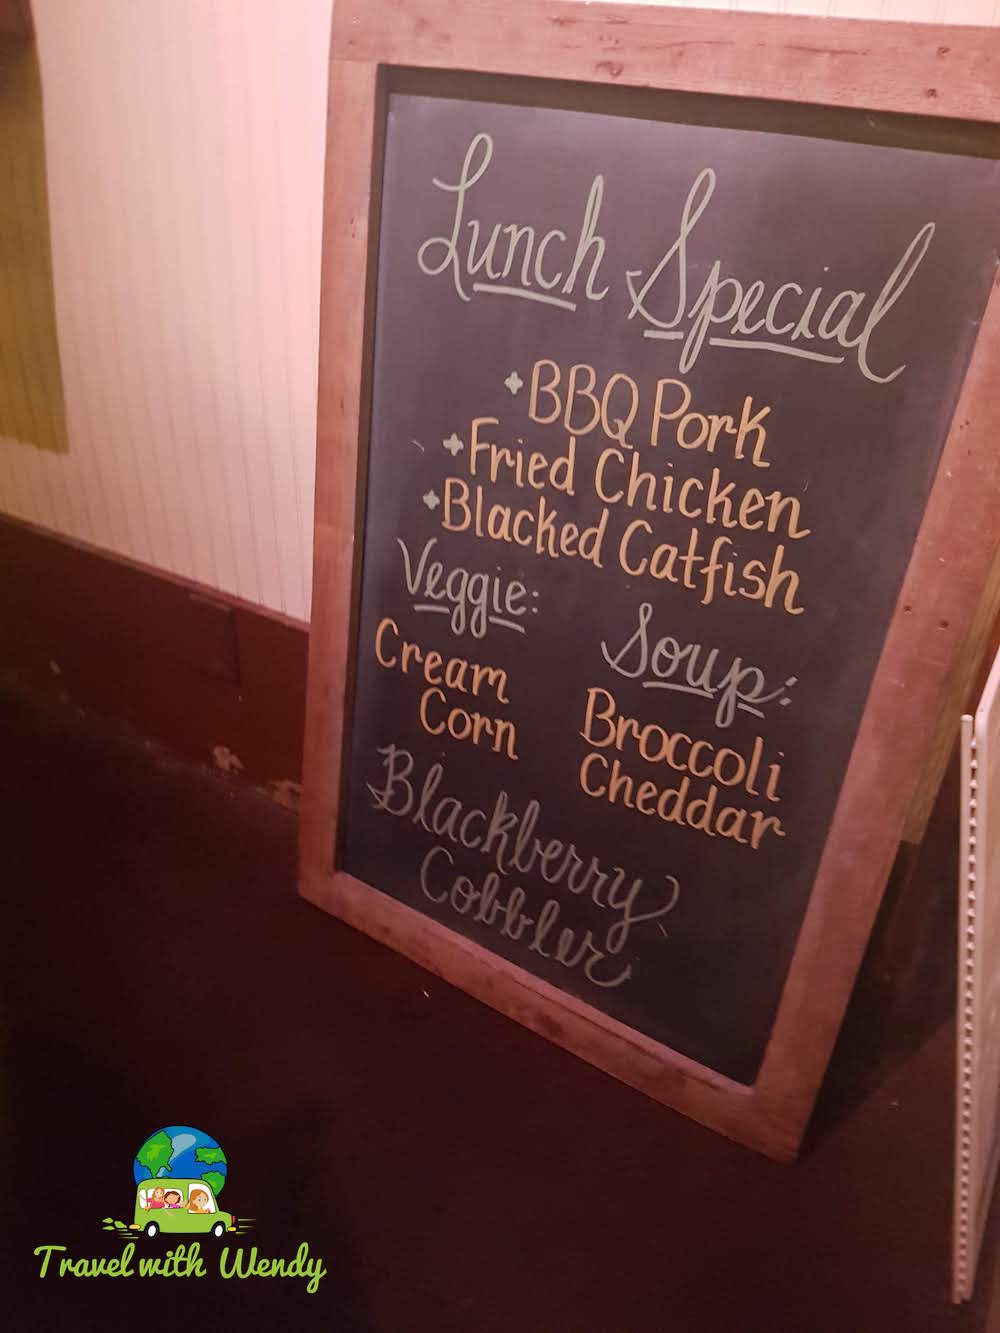 Lunch Special
+BBQ Pork
+Fried Chicken
+Blacked Catfish
Veggie:
Cream
Corn
Soup:
Broccoli
Cheddar
Blackberry
Cobbler
Travel with Wendy